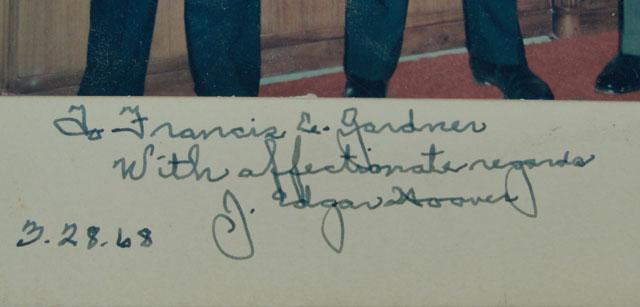 To Francis E. Gardner
With affectionate regards
J. Edgar Hoover
3.28.68